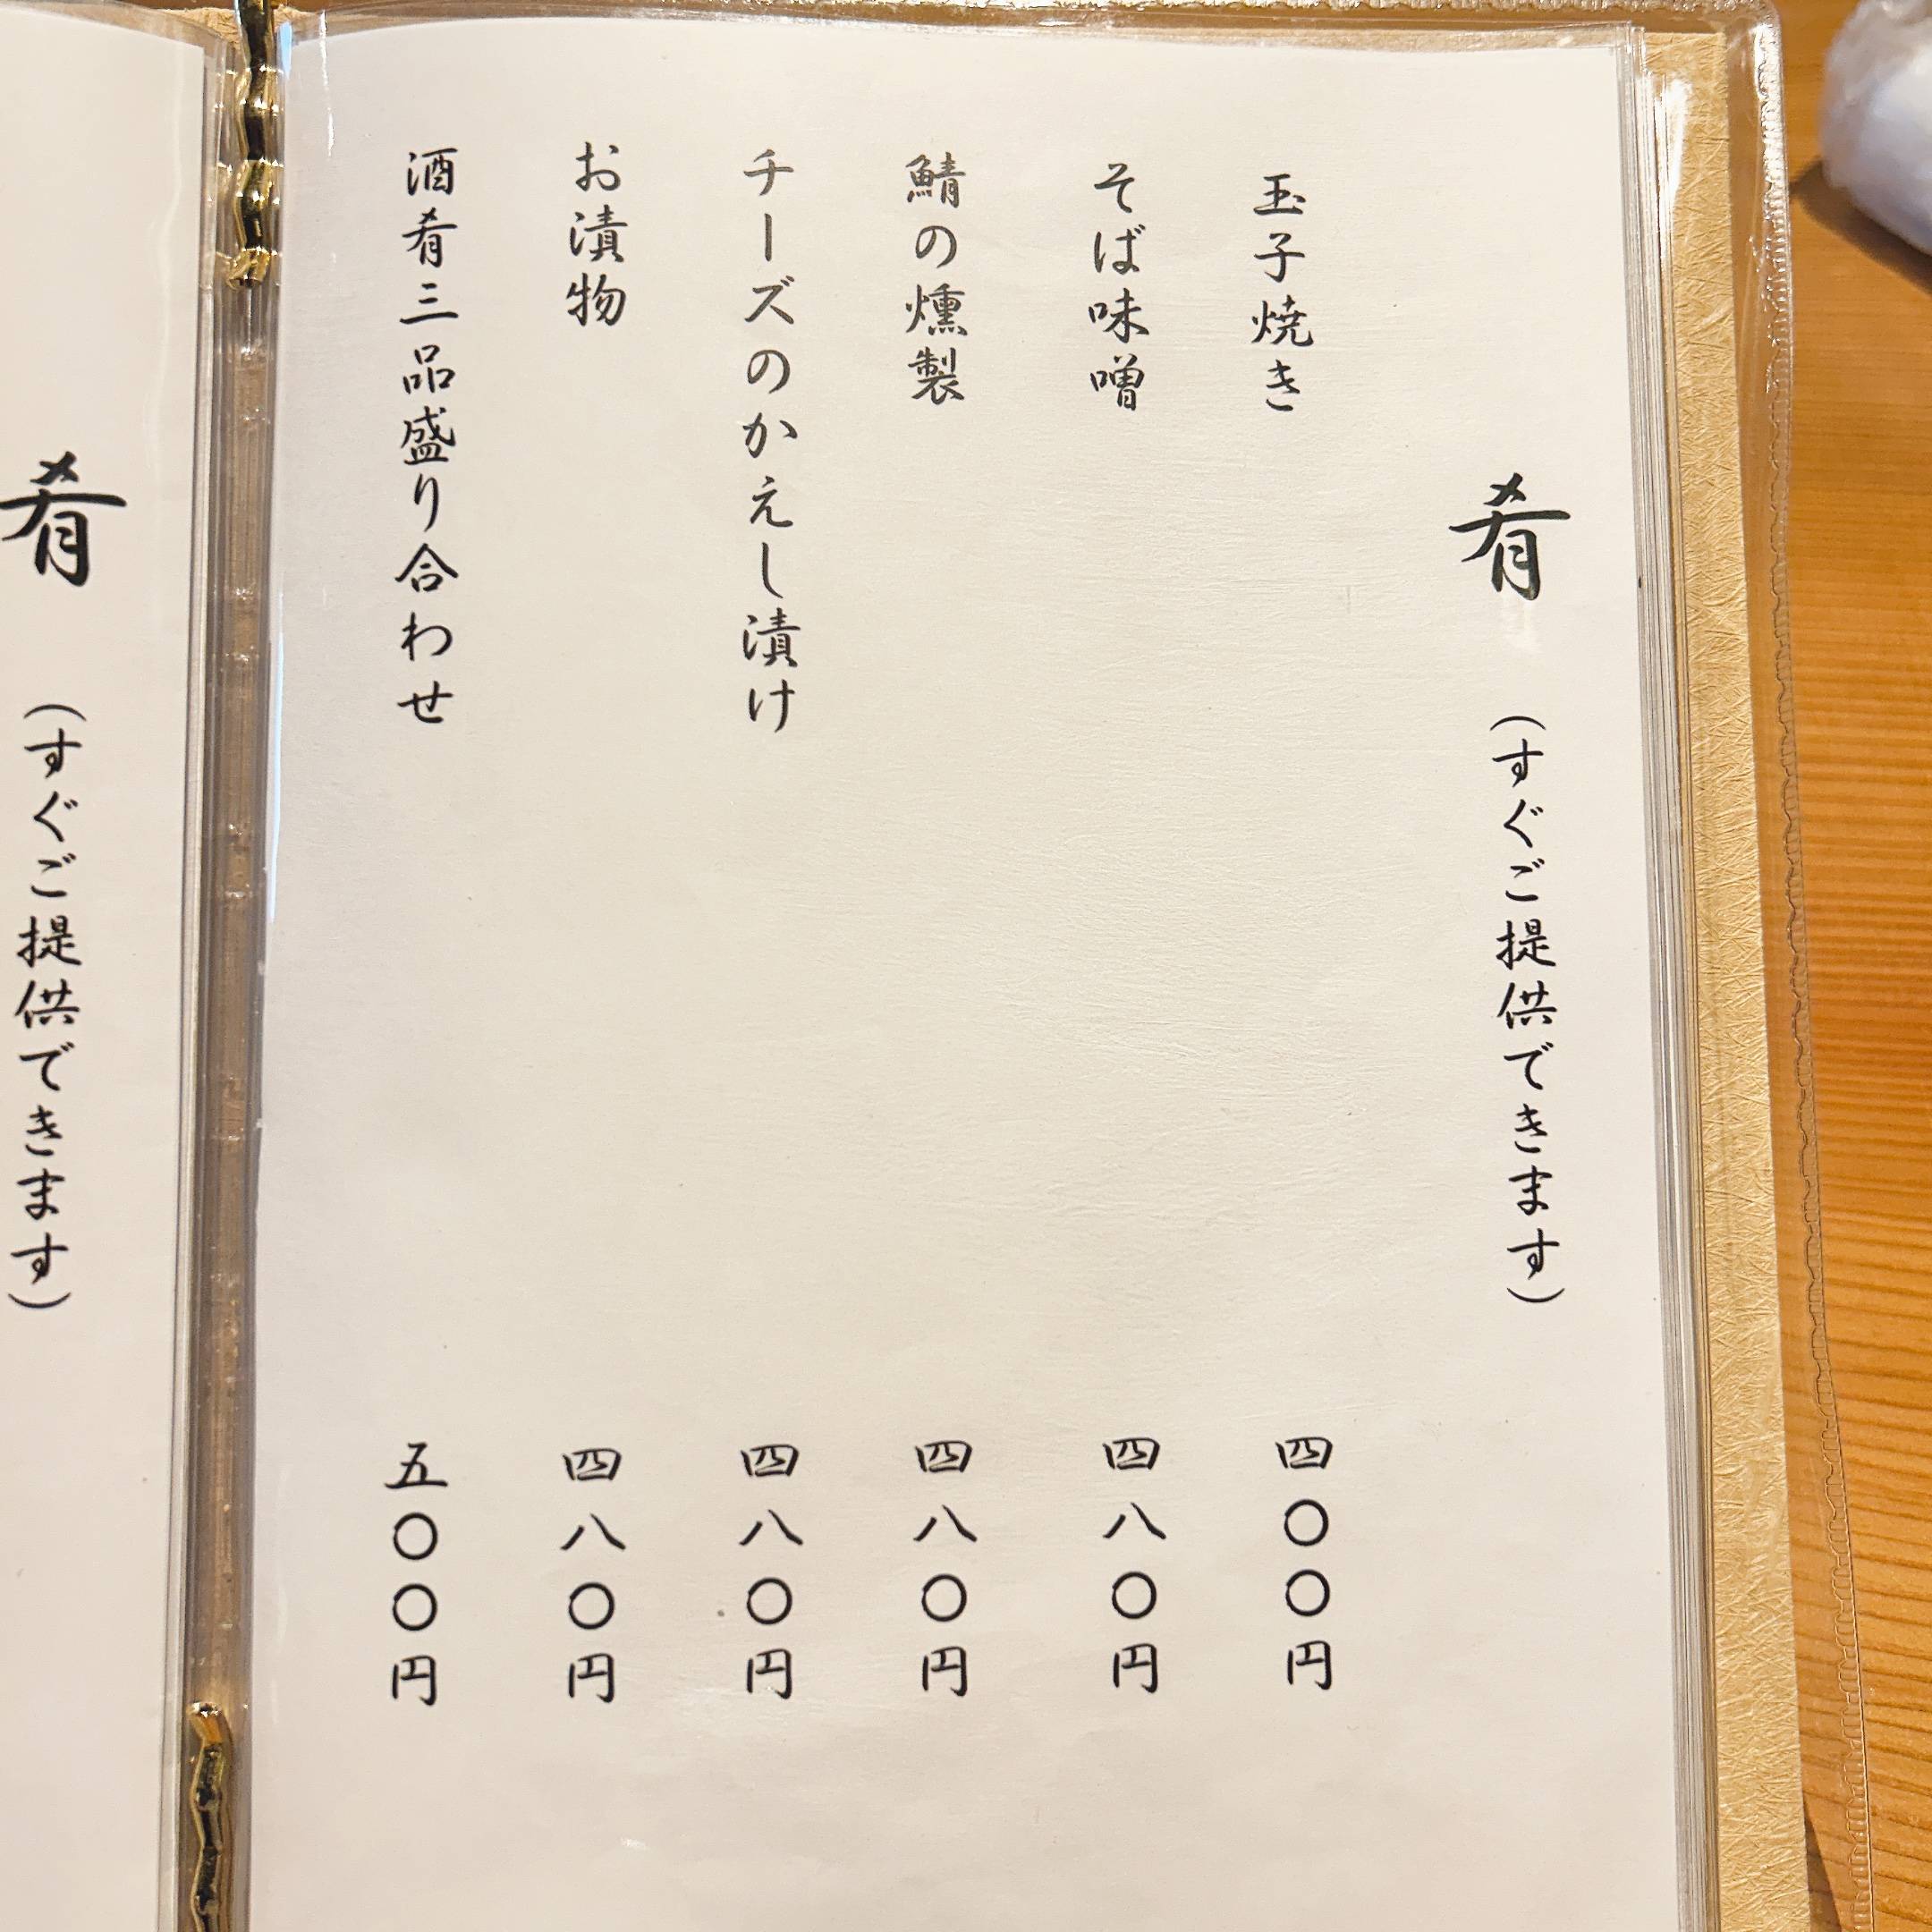 肴 (すぐご提供できます)
玉子焼き 四〇〇円
そば味噌 四八〇円
鯖の燻製 四八〇円
チーズのかえし漬け 四八〇円
お漬物 四八〇円
酒肴三品盛り合わせ 五〇〇円
肴 (すぐご提供できます)